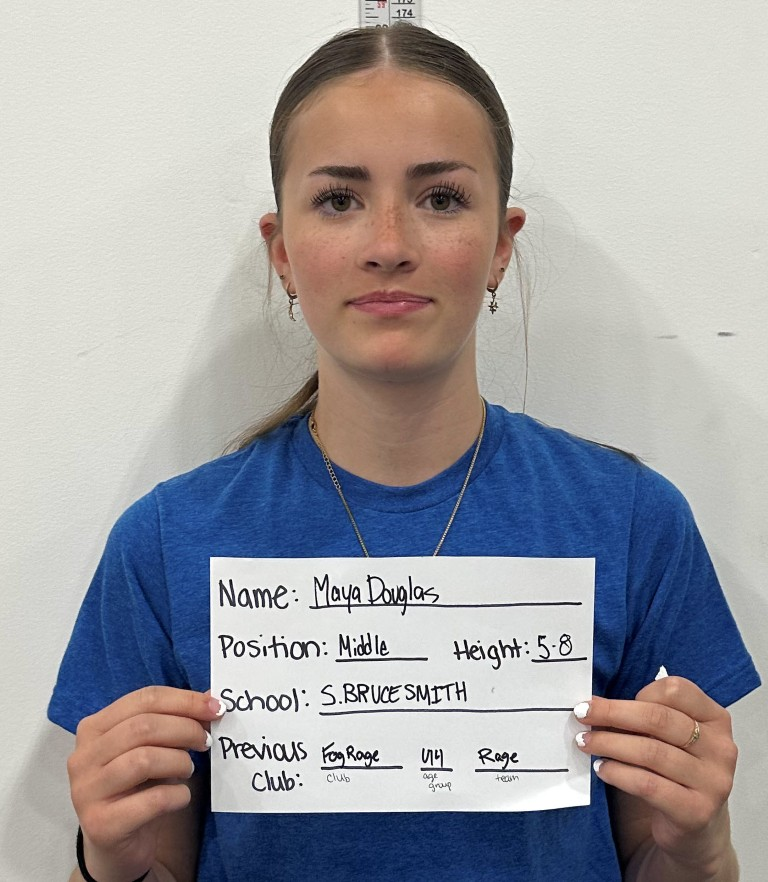 174
Name: Maya Douglas
Position: Middle Height: 5-8
School: S.BRUCE SMITH
Previous Club: Fog Rage U14 Rage
club age group team